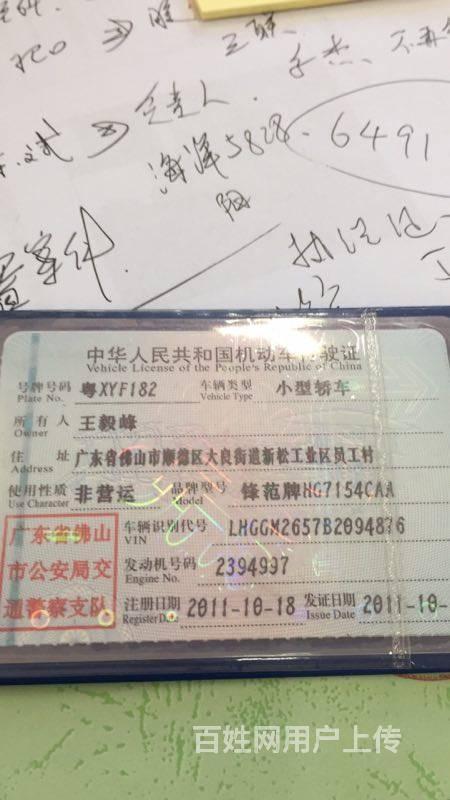 王联
不再
式 ⇒ 负责人.
海洋5828.
阳
6491
案件.
中华人民共和国机动车行驶证
Vehicle License of the People's Republic of China
号牌号码 粤XYF182 车辆类型 小型轿车
Plate No. Vehicle Type
所有人 王毅峰
Owner
住址 广东省佛山市顺德区大良街道新松工业区员工村
Address
使用性质 非营运 品牌型号 锋范牌HG7154CAA
Use Character Model
广东省佛山市公安局交通警察支队
车辆识别代号 LHGGM2657B2094876
VIN
发动机号码 2394997
Engine No.
注册日期 2011-10-18 发证日期 2011-10-
Register Date Issue Date
百姓网用户上传